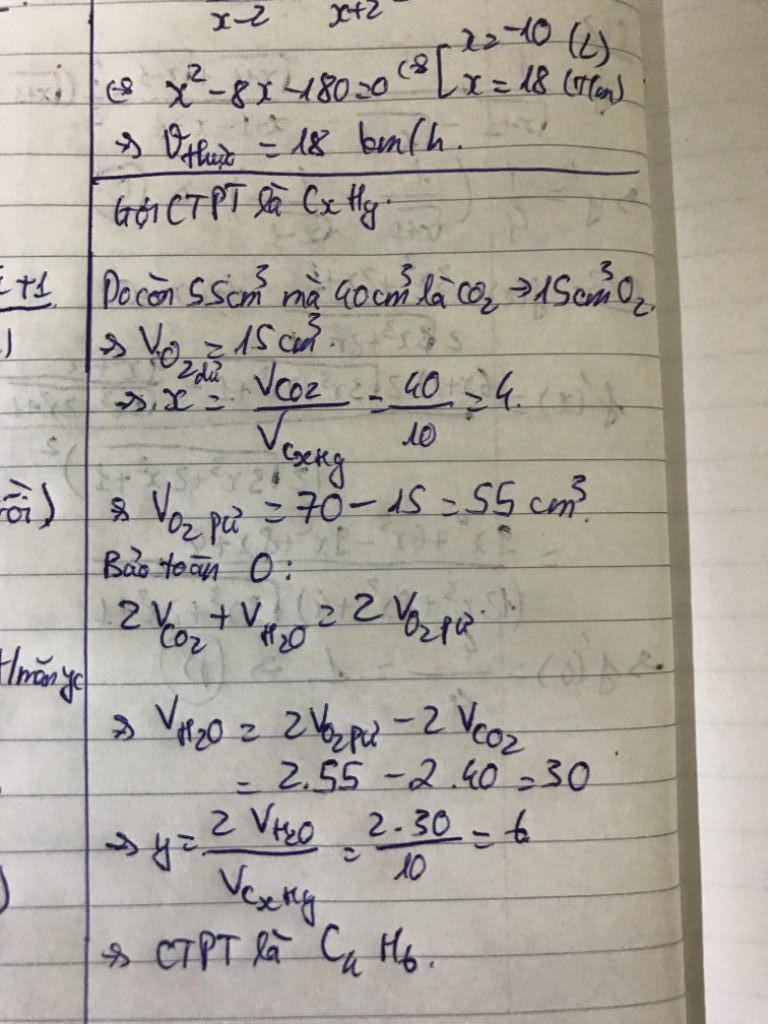 x-2 x+2
⇔ x² - 8x - 180 = 0 ⇔ [ x = -10 (L)
x = 18 (TMan)
⇒ Vthực = 18 km/h.
Gọi CTPT là CxHy.
+1
Do còn 55cm³ mà 40cm³ là CO₂ → 15cm³ O₂.
⇒ VO₂ dư = 15 cm³.
⇒ x = VCO₂ / VCxHy = 40 / 10 = 4.
⇒ VO₂ pứ = 70 - 15 = 55 cm³.
Bảo toàn O:
2 VCO₂ + VH₂O = 2 VO₂ pứ.
⇒ VH₂O = 2VO₂ pứ - 2 VCO₂
= 2.55 - 2.40 = 30
⇒ y = 2 VH₂O / VCxHy = 2.30 / 10 = 6
⇒ CTPT là C₄H₆.